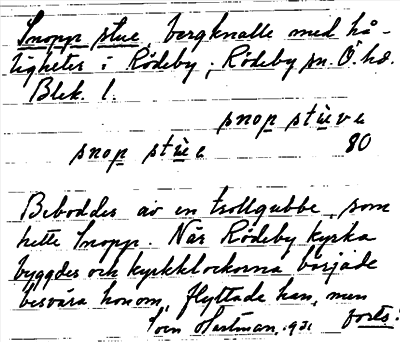 Snopp stue, bergknalle med hå-
ligheter i Rödeby, Rödeby sn. Ö. hd.
Blek. l.
snop stùve
snop stùe 80
Beboddes av en trollgubbe, som
hette Snopp. När Rödeby kyrka
byggdes och kyrkklockorna började
besvära honom, flyttade han, men
forts:
Sven Hartman, 1931